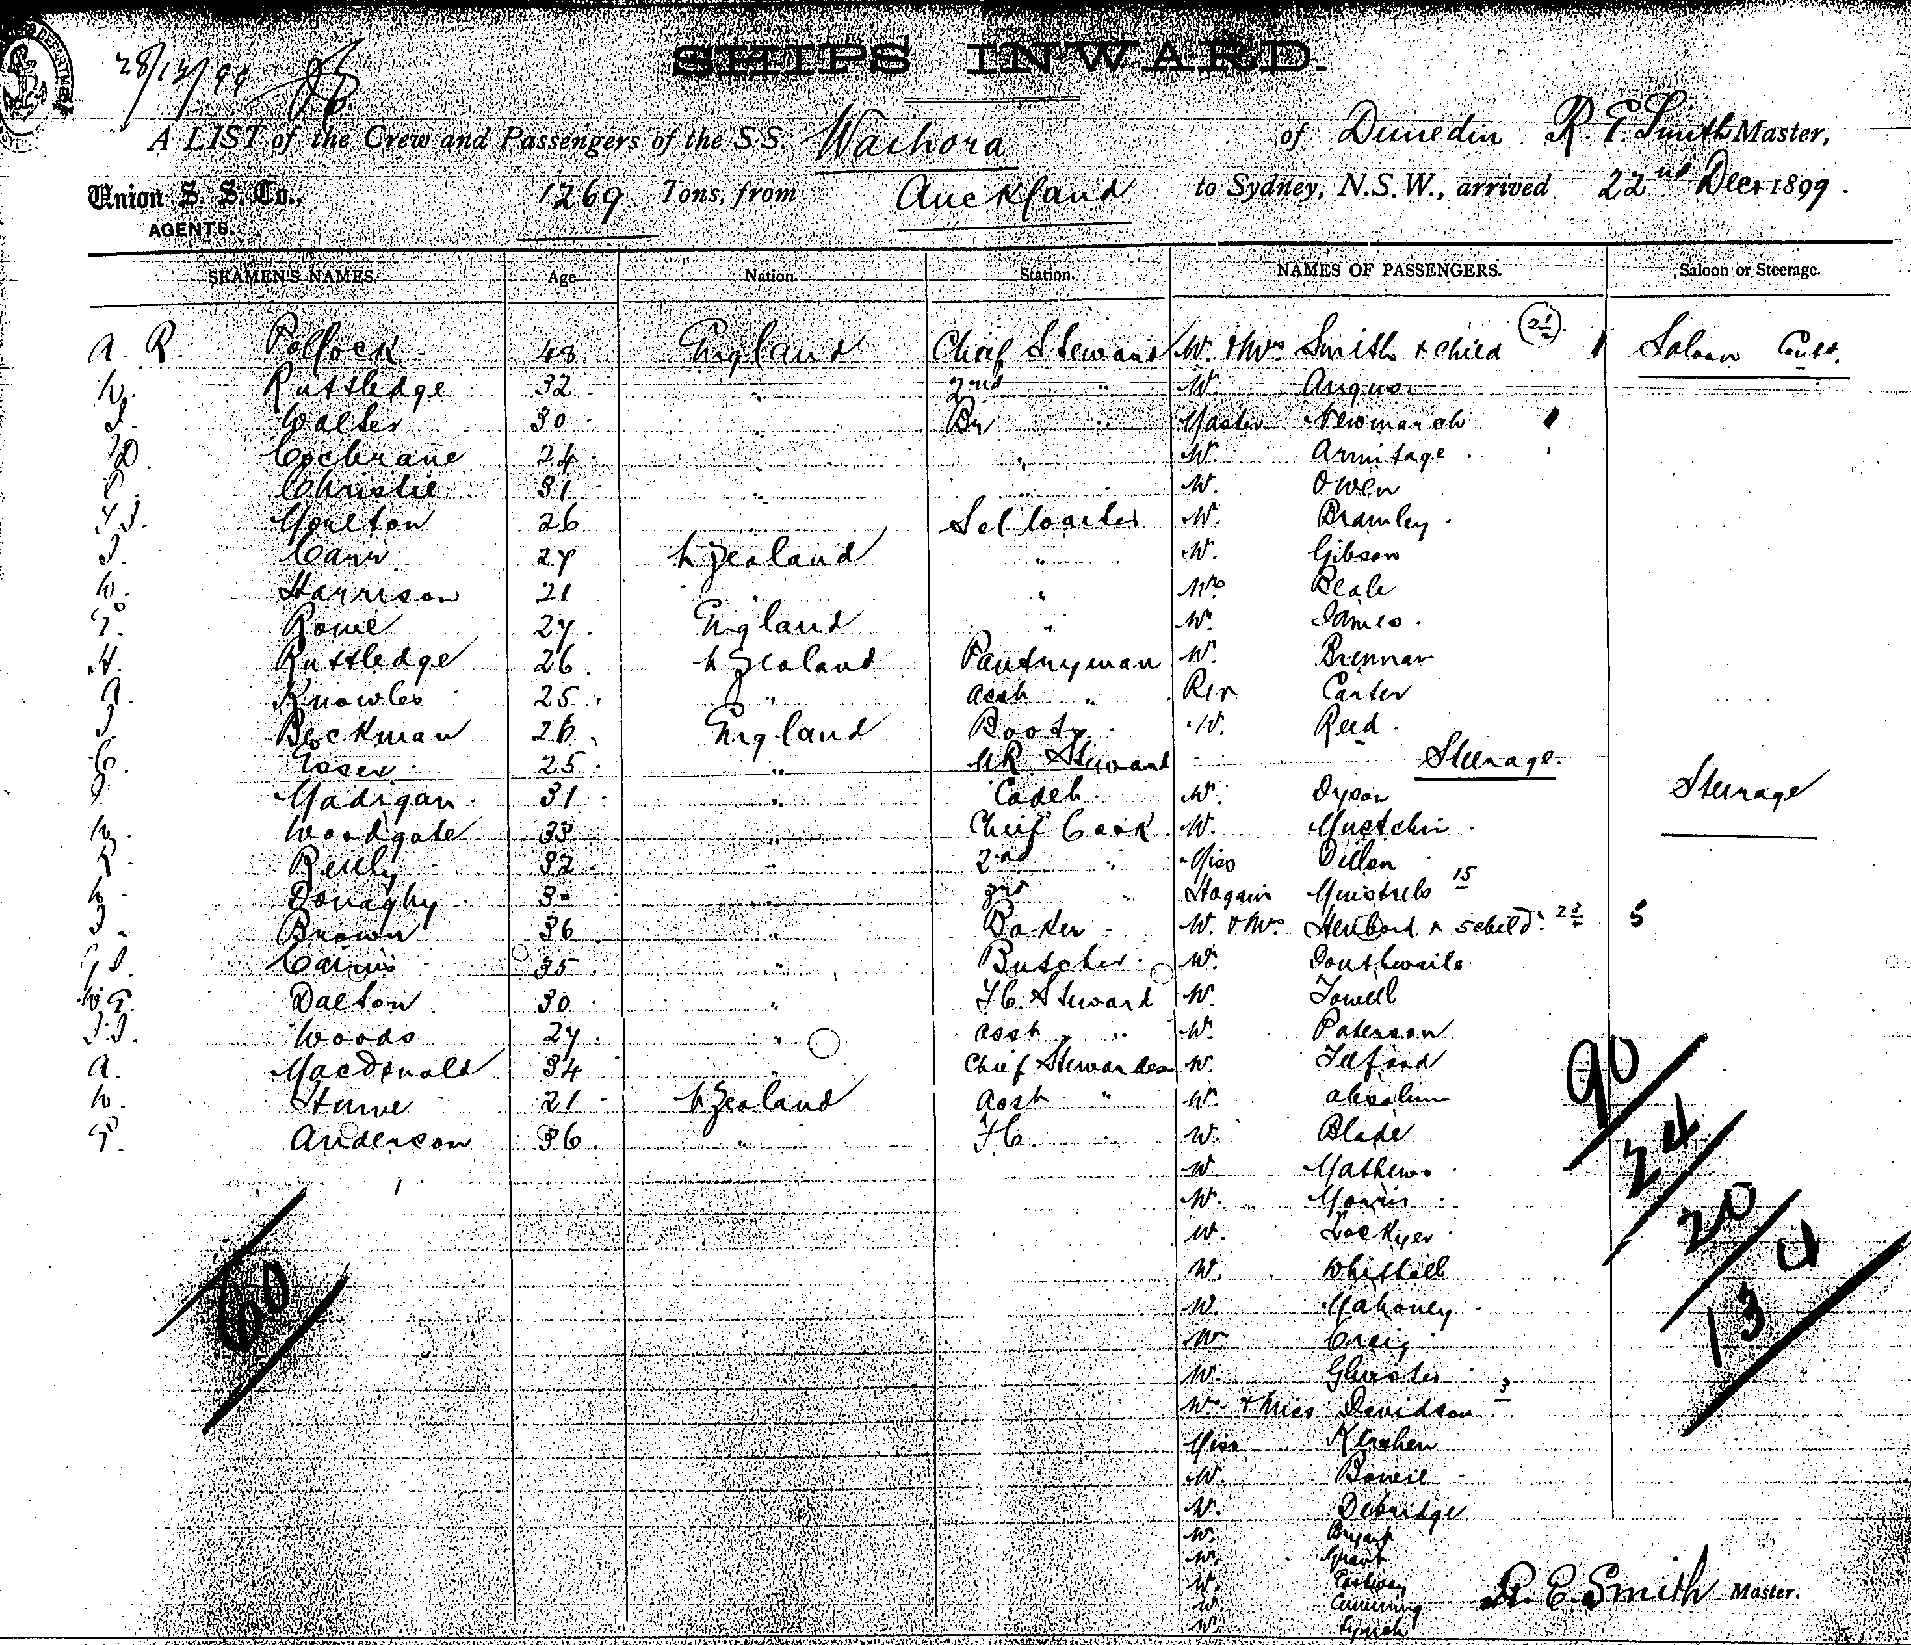 28/12/99
SHIPS INWARD.
A LIST of the Crew and Passengers of the S.S. Waihora of Dunedin R. E. Smith Master,
Union S. S. Co., 1269 Tons, from Auckland to Sydney, N.S.W., arrived 22nd Decr 1899.
AGENTS.
SEAMEN'S NAMES. Age Nation. Station. NAMES OF PASSENGERS. Saloon or Steerage.
A R Pollock 48 England Chief Steward Mr. & Mrs Smith & child 2½ Saloon
W. Ruttledge 32 " 2nd " Mr. Angus
J. Walter 30 " Br " Master Newmarch
Cochrane 24 " " Mr. Armitage
Christie 31 " " Mr. Owen
Moulton 26 " Sal Waiter Mr. Bramley
J. Carr 27 N Zealand " Mr. Gibson
W. Harrison 21 " " Mrs Beale
T. Rowe 27 England " Mr. James
H. Ruttledge 26 N Zealand Pantryman Mr. Brennan
A. Knowles 25 " Asst " Rev Carter
J Beckman 26 England Boots Mr. Reid
C. Essex 25 " Steward Steerage
J Madigan 31 " Cadet Mr. Dyson Steerage
W. Woodgate 33 " Chief Cook Mr. Mutchin
R. Reilly 32 " 2nd " Miss Dillon
W. Donaghy 30 " 3rd " Hogan's Minstrels 15
J. Brown 36 " Baker Mr. & Mrs & 5 child 5
Cairns 35 " Butcher Mr. Douthwaite
W T. Dalton 30 " F.C. Steward Mr. Towell
J.J. Woods 27 " Asst " Mr. Paterson
A. MacDonald 34 " Chief Stewardess Mr. Telford
W. 21 N Zealand Asst " Mr. Absalum
T. Anderson 36 " F.C. " Mr. Blade
Mr. Mathews
Mr. Morris
Mr. Lockyer
Mr. Whittall
Mr. Mahoney
Mr. Craig
Mr.
Mr & Miss Davidson 3
Miss
Mr. Bowie
Mr. Debridge
Mr. Bryant
Mr. Grant
Mr.
Mr. Cumming
Mr. Lynch
60
90/24/20/4
13
R. E. Smith Master.